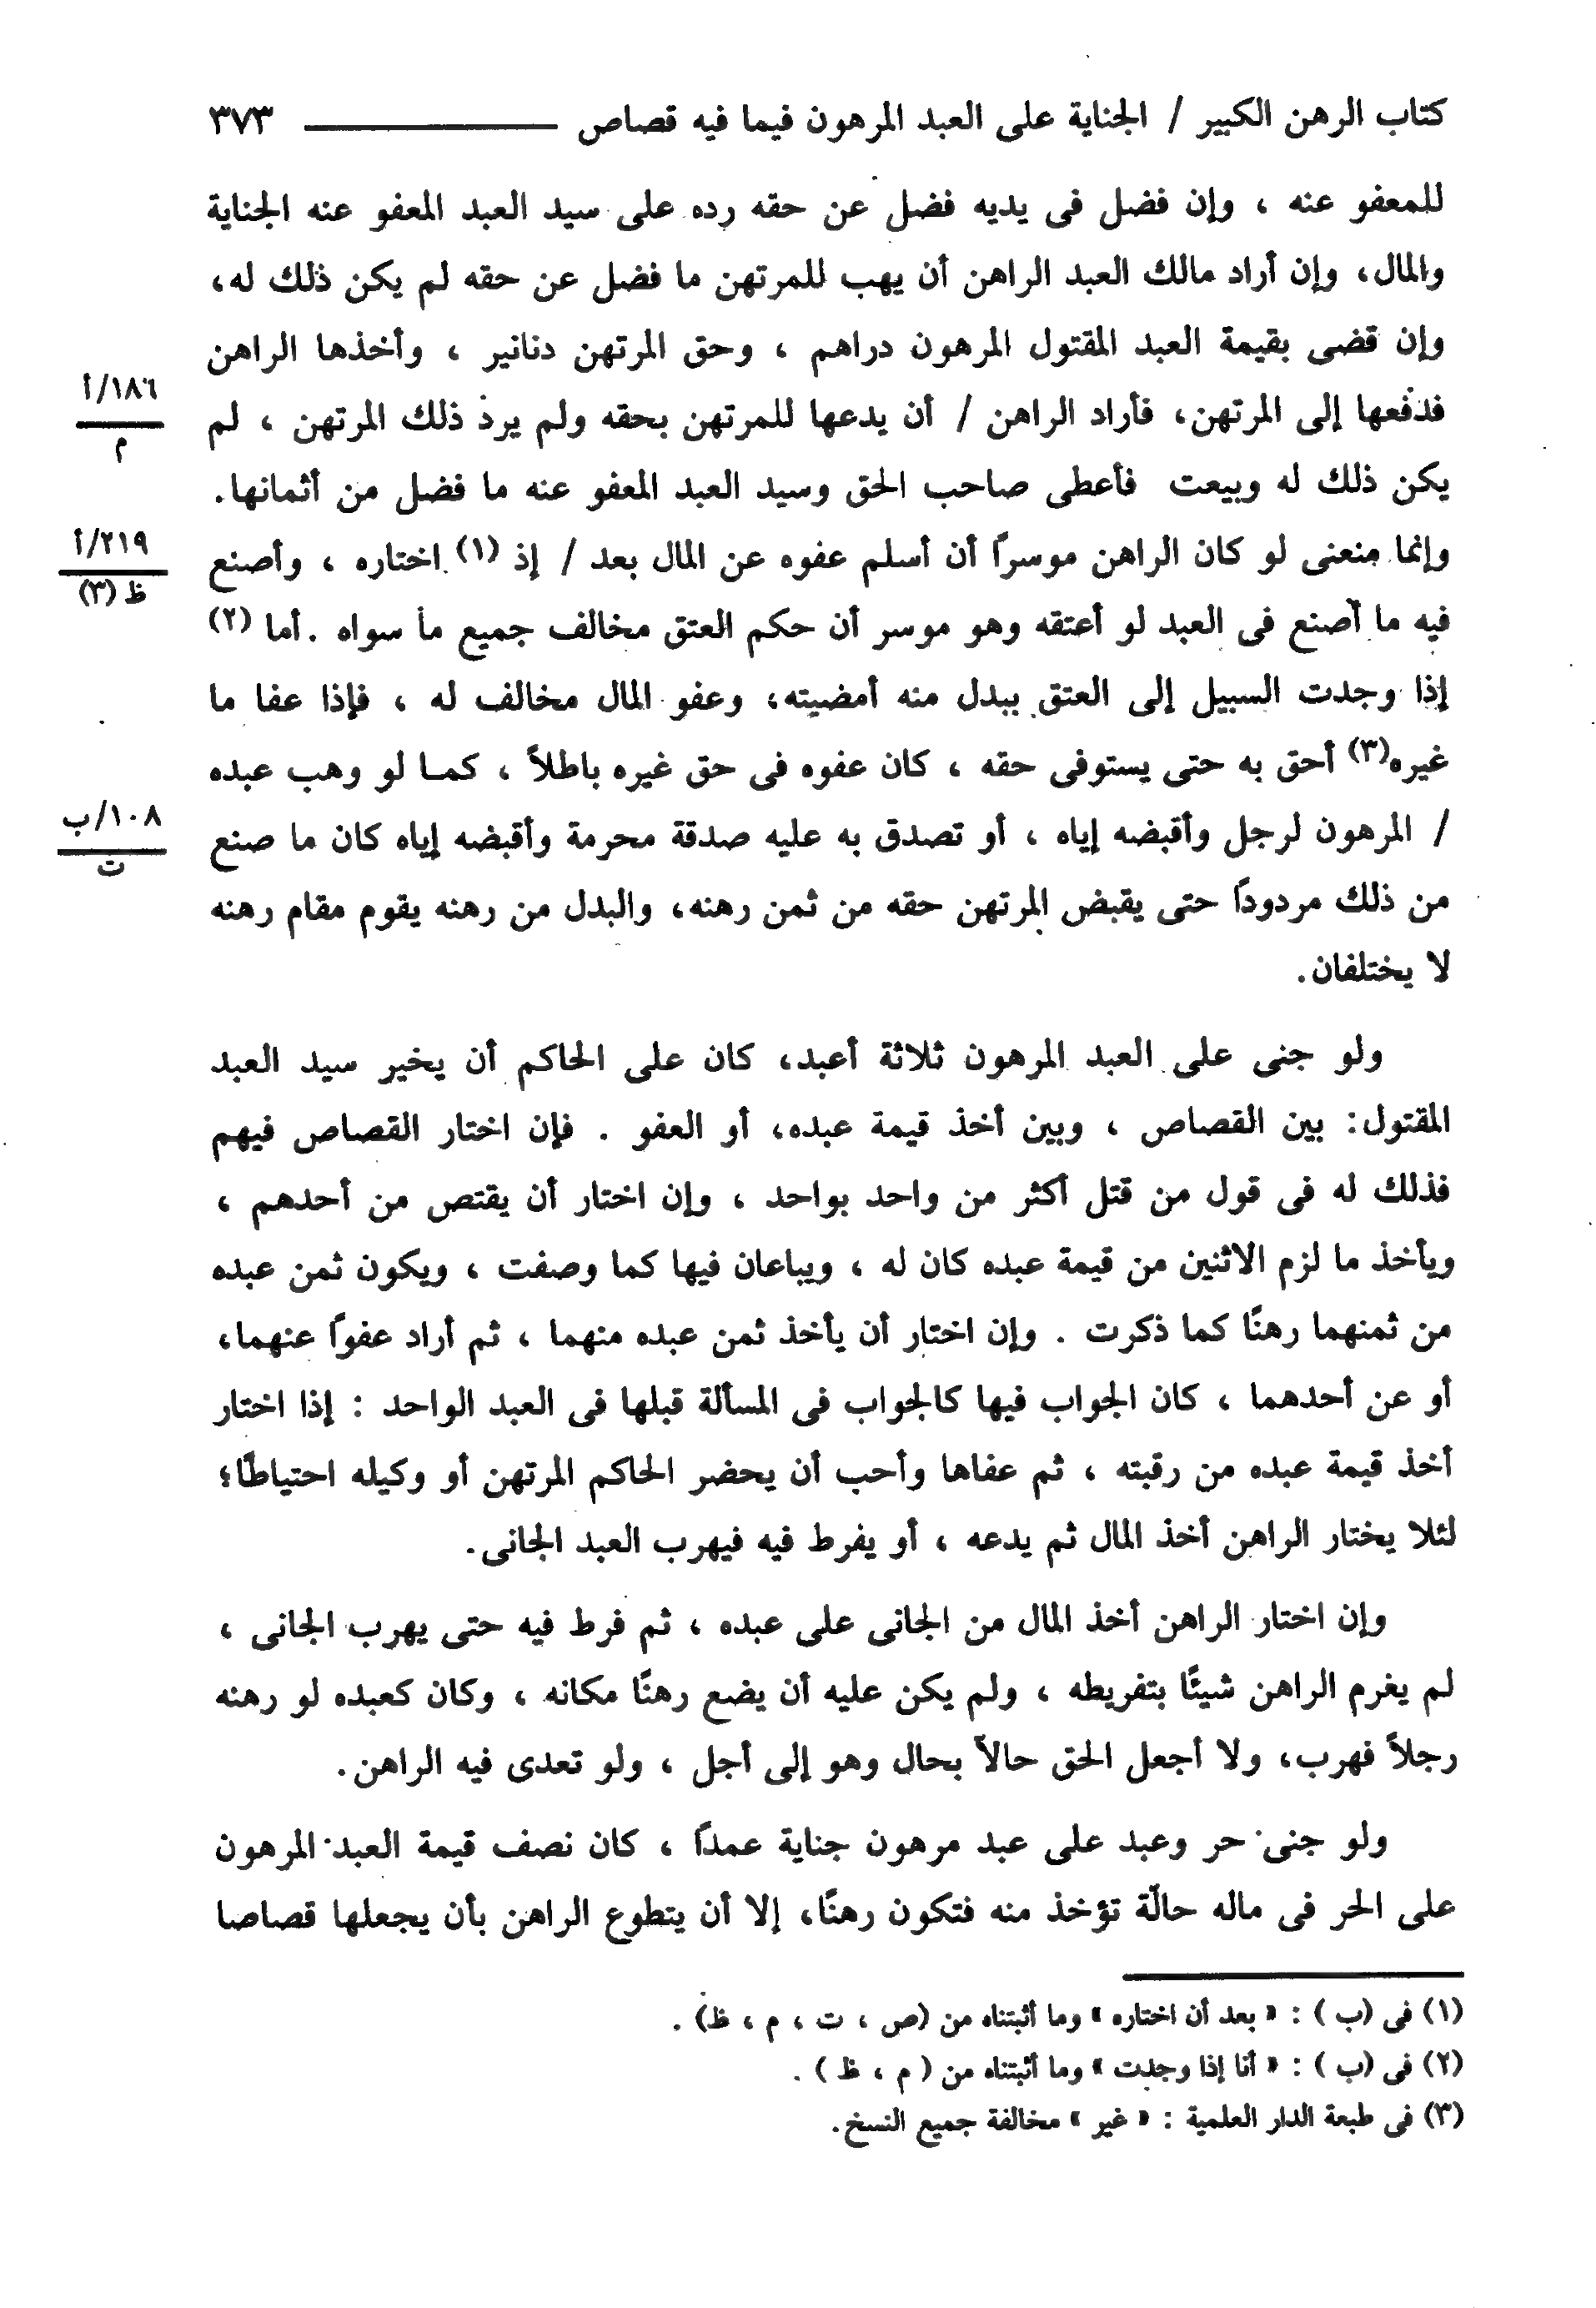 كتاب الرهن الكبير / الجناية على العبد المرهون فيما فيه قصاص ـــــــــ ٣٧٣
للمعفو عنه ، وإن فضل فى يديه فضل عن حقه رده على سيد العبد المعفو عنه الجناية
والمال، وإن أراد مالك العبد الراهن أن يهب للمرتهن ما فضل عن حقه لم يكن ذلك له،
وإن قضى بقيمة العبد المقتول المرهون دراهم ، وحق المرتهن دنانير ، وأخذها الراهن
١٨٦/أ
م
فدفعها إلى المرتهن، فأراد الراهن / أن يدعها للمرتهن بحقه ولم يرد ذلك المرتهن ، لم
يكن ذلك له وبيعت فأعطى صاحب الحق وسيد العبد المعفو عنه ما فضل من أثمانها.
٢١٩/أ
ظ (٣)
وإنما منعنى لو كان الراهن موسرًا أن أسلم عفوه عن المال بعد / إذ (١) اختاره ، وأصنع
فيه ما أصنع فى العبد لو أعتقه وهو موسر أن حكم العتق مخالف جميع ما سواه .أما (٢)
إذا وجدت السبيل إلى العتق ببدل منه أمضيته، وعفو المال مخالف له ، فإذا عفا ما
غيره(٣) أحق به حتى يستوفى حقه ، كان عفوه فى حق غيره باطلاً ، كمـا لو وهب عبده
١٠٨/ب
ت
/ المرهون لرجل وأقبضه إياه ، أو تصدق به عليه صدقة محرمة وأقبضه إياه كان ما صنع
من ذلك مردودًا حتى يقبض المرتهن حقه من ثمن رهنه، والبدل من رهنه يقوم مقام رهنه
لا يختلفان.
ولو جنى على العبد المرهون ثلاثة أعبد، كان على الحاكم أن يخير سيد العبد
المقتول: بين القصاص ، وبين أخذ قيمة عبده، أو العفو . فإن اختار القصاص فيهم
فذلك له فى قول من قتل أكثر من واحد بواحد ، وإن اختار أن يقتص من أحدهم ،
ويأخذ ما لزم الاثنين من قيمة عبده كان له ، ويباعان فيها كما وصفت ، ويكون ثمن عبده
من ثمنهما رهنًا كما ذكرت . وإن اختار أن يأخذ ثمن عبده منهما ، ثم أراد عفوًا عنهما،
أو عن أحدهما ، كان الجواب فيها كالجواب فى المسألة قبلها فى العبد الواحد : إذا اختار
أخذ قيمة عبده من رقبته ، ثم عفاها وأحب أن يحضر الحاكم المرتهن أو وكيله احتياطًا؛
لئلا يختار الراهن أخذ المال ثم يدعه ، أو يفرط فيه فيهرب العبد الجانى.
وإن اختار الراهن أخذ المال من الجانى على عبده ، ثم فرط فيه حتى يهرب الجانى ،
لم يغرم الراهن شيئًا بتفريطه ، ولم يكن عليه أن يضع رهنًا مكانه ، وكان كعبده لو رهنه
رجلاً فهرب، ولا أجعل الحق حالاً بحال وهو إلى أجل ، ولو تعدى فيه الراهن.
ولو جنى حر وعبد على عبد مرهون جناية عمدًا ، كان نصف قيمة العبد المرهون
على الحر فى ماله حالّة تؤخذ منه فتكون رهنًا، إلا أن يتطوع الراهن بأن يجعلها قصاصا
(١) فى (ب ) : « بعد أن اختاره » وما أثبتناه من (ص ، ت ، م ، ظ) .
(٢) فى (ب ) : « أنا إذا وجدت » وما أثبتناه من ( م ، ظ ) .
(٣) فى طبعة الدار العلمية : « غير » مخالفة جميع النسخ.